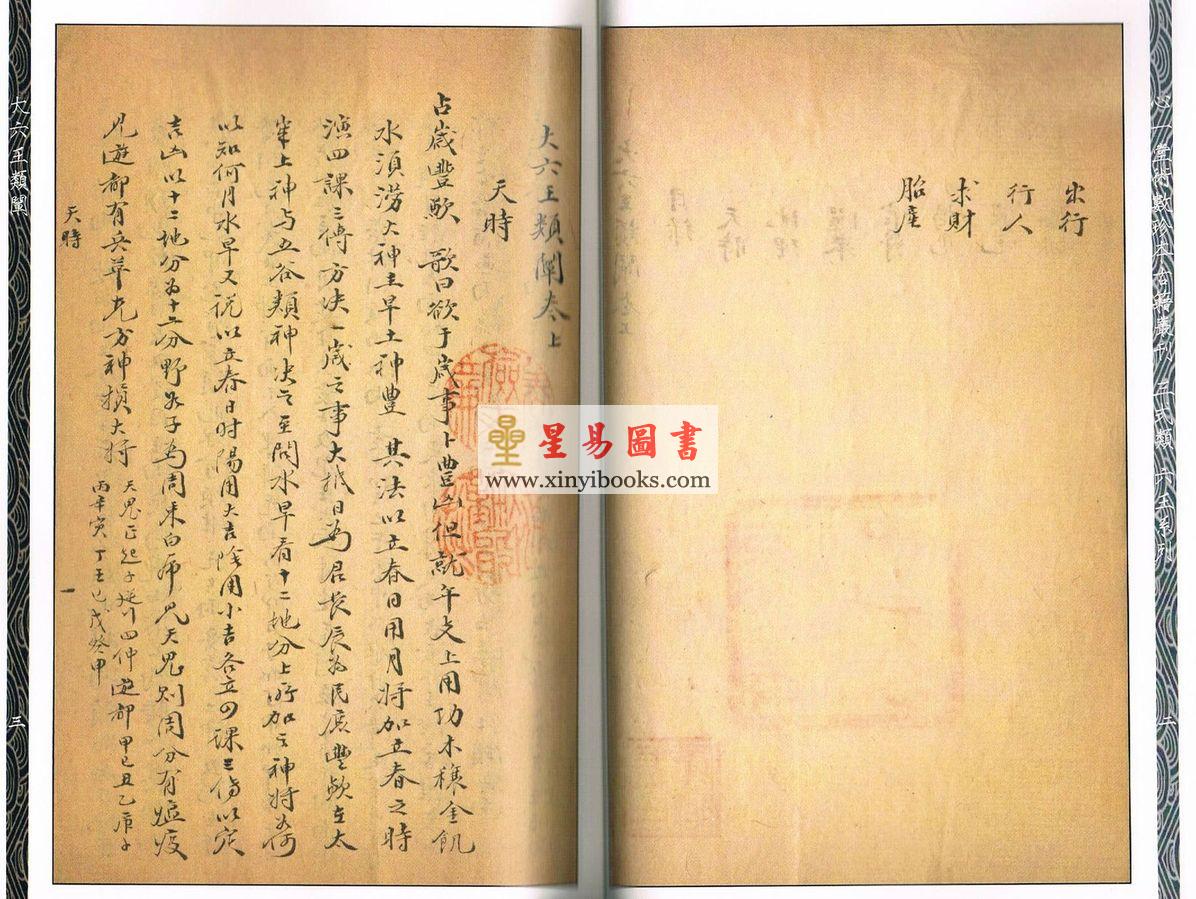 心一堂術數珍本古籍叢刊 三式類 六壬系列
二
出行
行人
求財
胎產
大六壬類闡卷上
天時
占歲豐歉 歌曰欲于歲事卜豐凶但就年支上用功木稼金飢
水湏澇火神主旱土神豐 其法以立春日用月將加立春之時
演四課三傳方決一歲之事大抵日為君長辰為民庶豐歉在太
歲上神与五谷類神決之至問水旱看十二地分上所加之神將為何
以知何月水旱又說以立春日时陽用大吉陰用小吉各立四課三傳以定
吉凶以十二地分為十二分野如子為周末白虎見天鬼則周分有瘟疫
見遊都有兵革尤方神損大將
天鬼正起子逆行四仲遊都甲己丑乙庚子
丙辛寅丁壬巳戊癸申
天時
一
大六壬類闡
三
星易圖書
www.xinyibooks.com